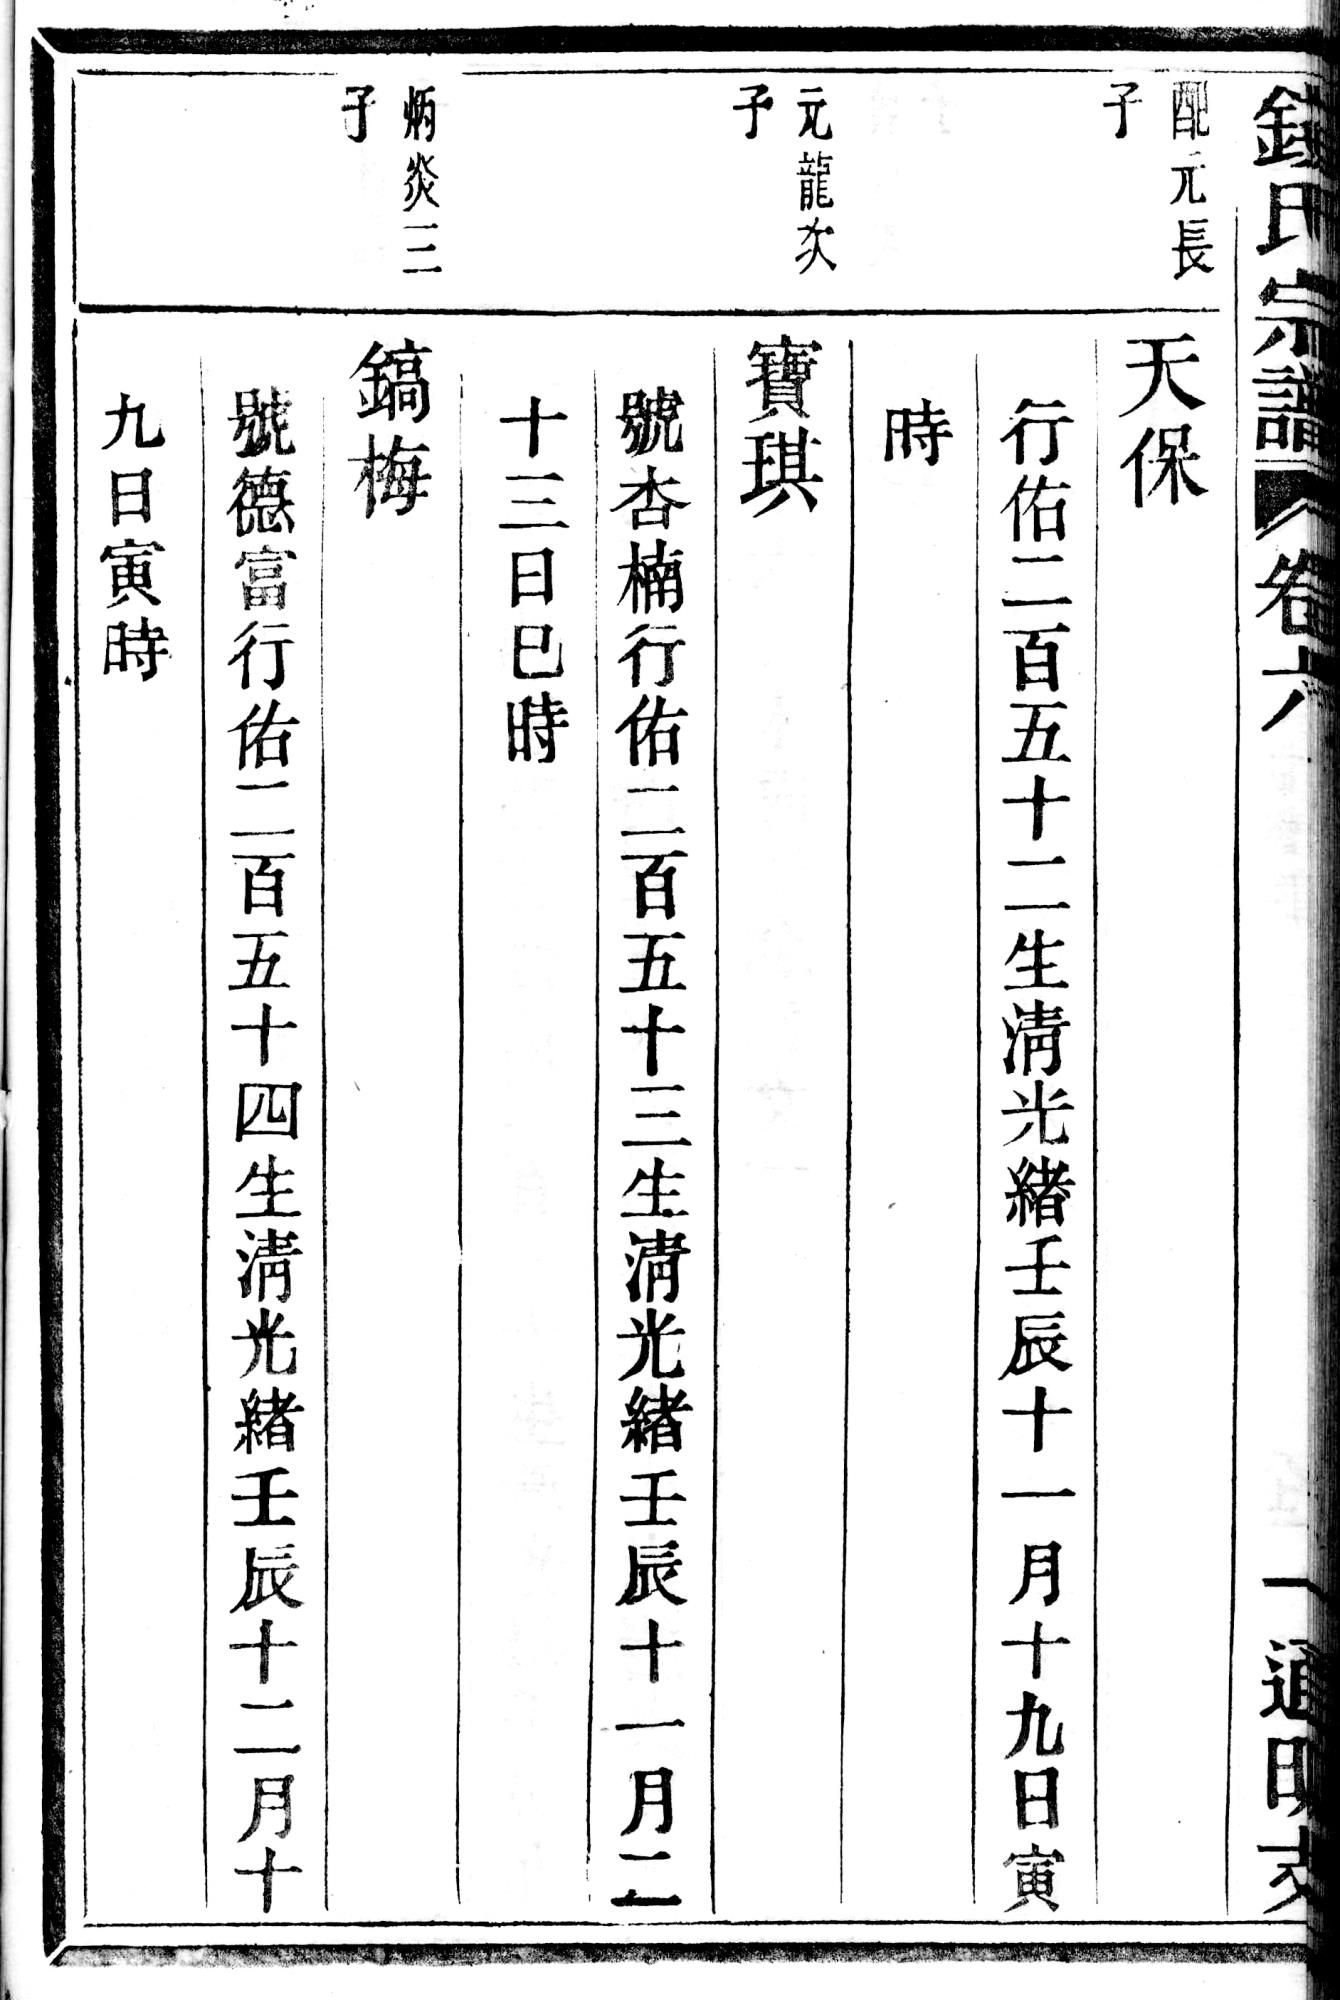 氏宗譜 卷六 一 通明支
配元長
子
天保
行佑二百五十二生淸光緒壬辰十一月十九日寅
時
元龍次
子
寶琪
號杏楠行佑二百五十三生淸光緒壬辰十一月二
十三日巳時
炳炎三
子
鎬梅
號德富行佑二百五十四生淸光緒壬辰十二月十
九日寅時